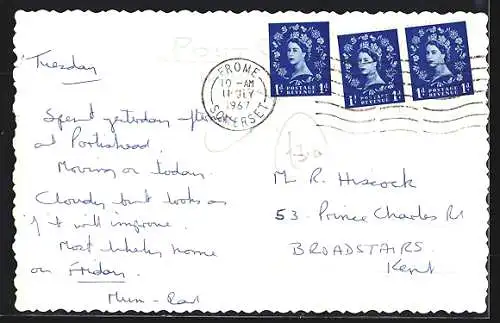 Tuesday
Spent yesterday
at Portishead.
Moving on today.
Cloudy but looks as
if it will improve.
Most likely home
on Friday.
Mum - Dad
POSTAGE REVENUE
1D 1D
POSTAGE REVENUE
1D 1D
POSTAGE REVENUE
1D 1D
FROME
10-AM
11 JLY
1967
SOMERSET
R. Hiscock
53. Prince Charles Rd
BROADSTAIRS.
Kent